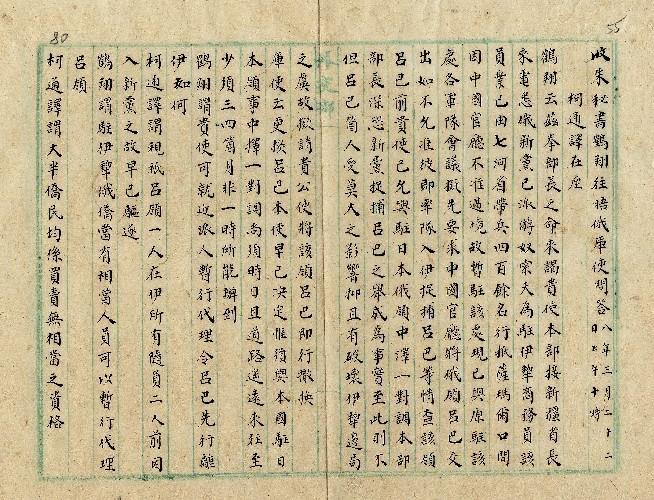 收朱秘書鶴翔往晤俄庫使問答 八年三月二十二日上午十時
柯通譯在座
鶴翔云茲奉部長之命來謁貴使本部接新疆省長
來電悉俄新黨已派將奴索夫為駐伊犂商務員該
員業已由七河省帶兵四百餘名行抵薩瑪爾口間
因中國官廳不准過境故暫駐該處現已與原駐該
處各軍隊會議擬先要求中國官廳將俄領呂巴交
出如不允准彼即率隊入伊捉捕呂巴等情查該領
呂巴前貴使已允與駐日本俄領中擇一對調本部
部長深恐新黨捉捕呂巴之舉成為事實至此則不
但呂巴個人受莫大之影響抑且有破壞伊犂邊局
之虞故擬請貴公使將該領呂巴即行撤換
庫使云更換呂巴本使早已決定惟須與本國駐日
本領事中擇一對調尚須時日且道路遙遠來往至
少須三四個月非一時所能辦到
鶴翔謂貴使可就近派人暫行代理令呂巴先行離
伊如何
柯通譯謂現祇呂領一人在伊所有隨員二人前因
入新黨之故早已驅逐
鶴翔謂駐伊犂俄僑當有相當人員可以暫行代理
呂領
柯通譯謂大半僑民均係買賣無相當之資格
80
55